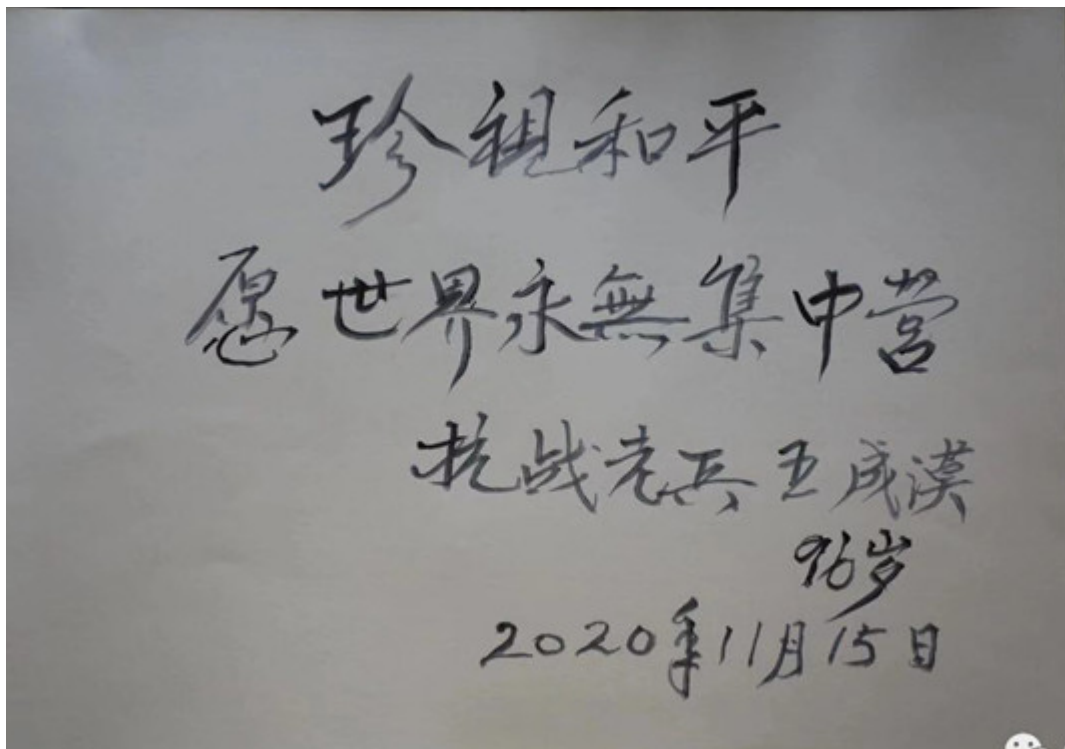 珍祖和平
愿世界永無集中营
抗战老兵王成漠
96岁
2020年11月15日